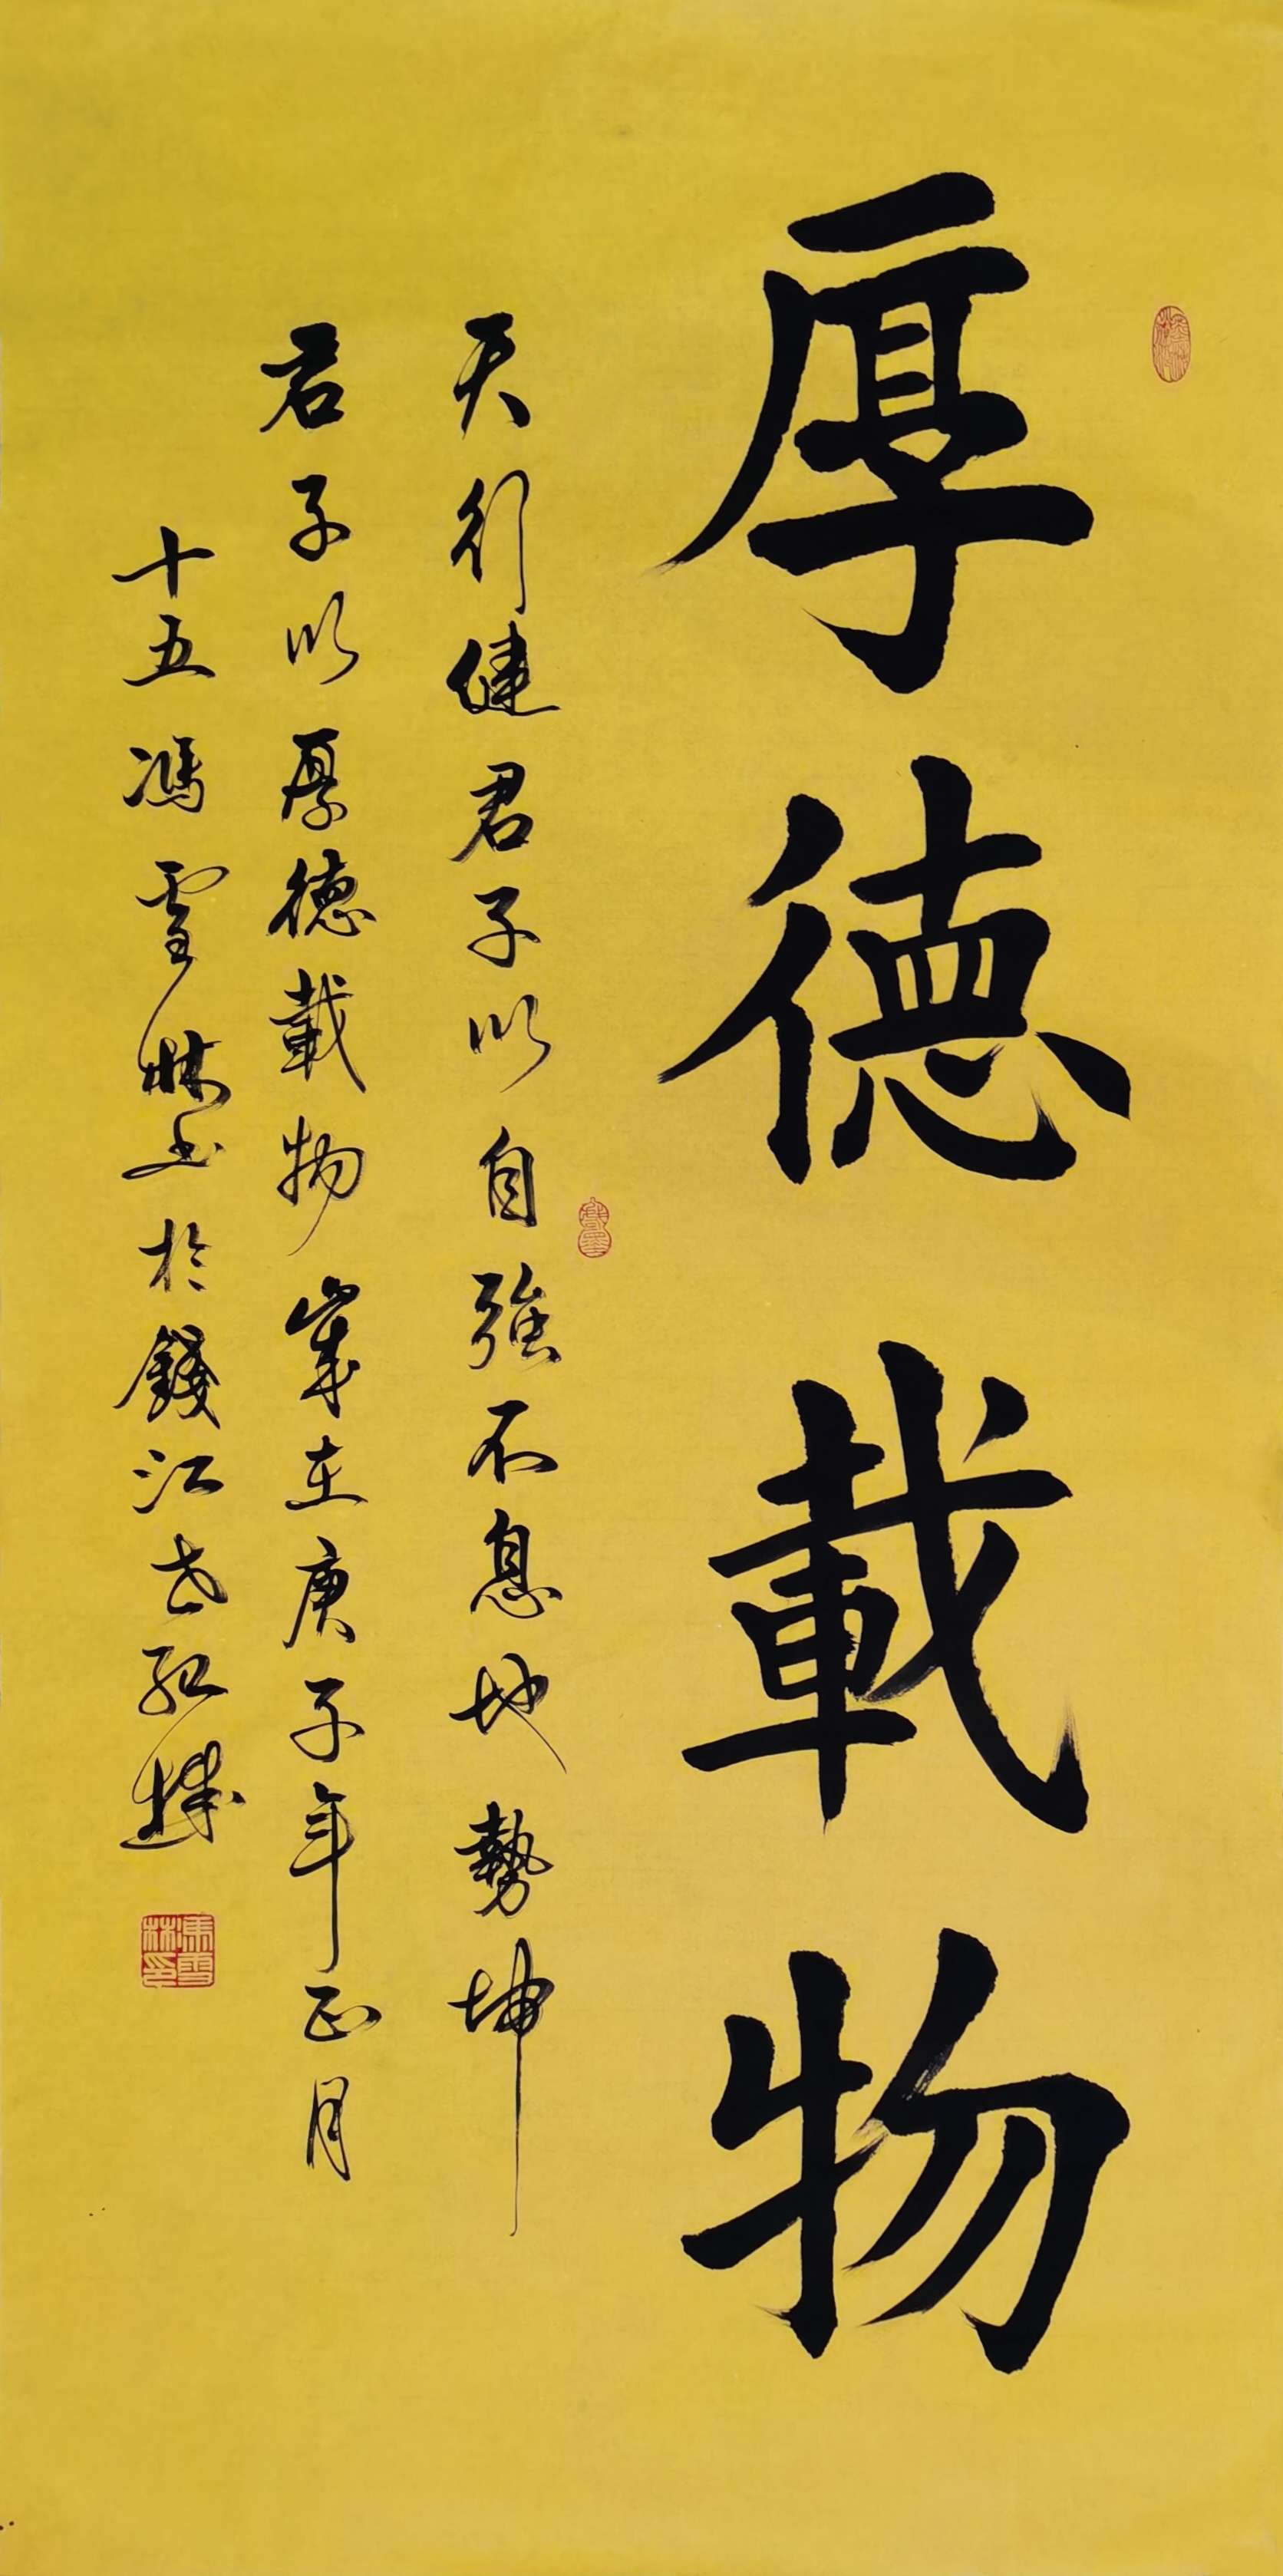 厚德載物
天行健君子以自強不息地勢坤
君子以厚德載物歲在庚子年正月
十五馮雪林書於錢江世紀城
馮雪林印